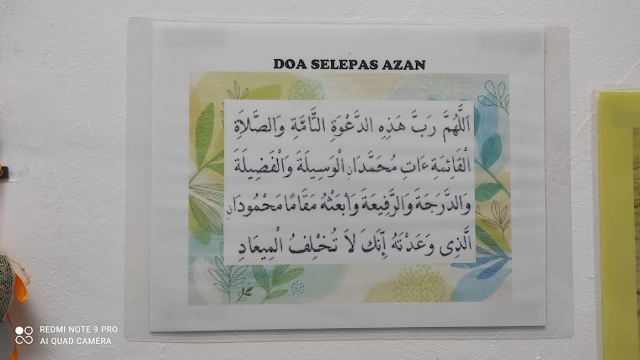 DOA SELEPAS AZAN
اَللَّهُمَّ رَبَّ هَذِهِ الدَّعْوَةِ التَّامَّةِ وَالصَّلَاةِ
الْقَائِمَةِ ءَاتِ مُحَمَّدَانِ الْوَسِيلَةَ وَالْفَضِيلَةَ
وَالدَّرَجَةَ وَالرَّفِيعَةَ وَابْعَثْهُ مَقَامًا مَحْمُودَانِ
الَّذِى وَعَدْتَهُ إِنَّكَ لَا تُخْلِفُ الْمِيعَادِ
REDMI NOTE 9 PRO
AI QUAD CAMERA